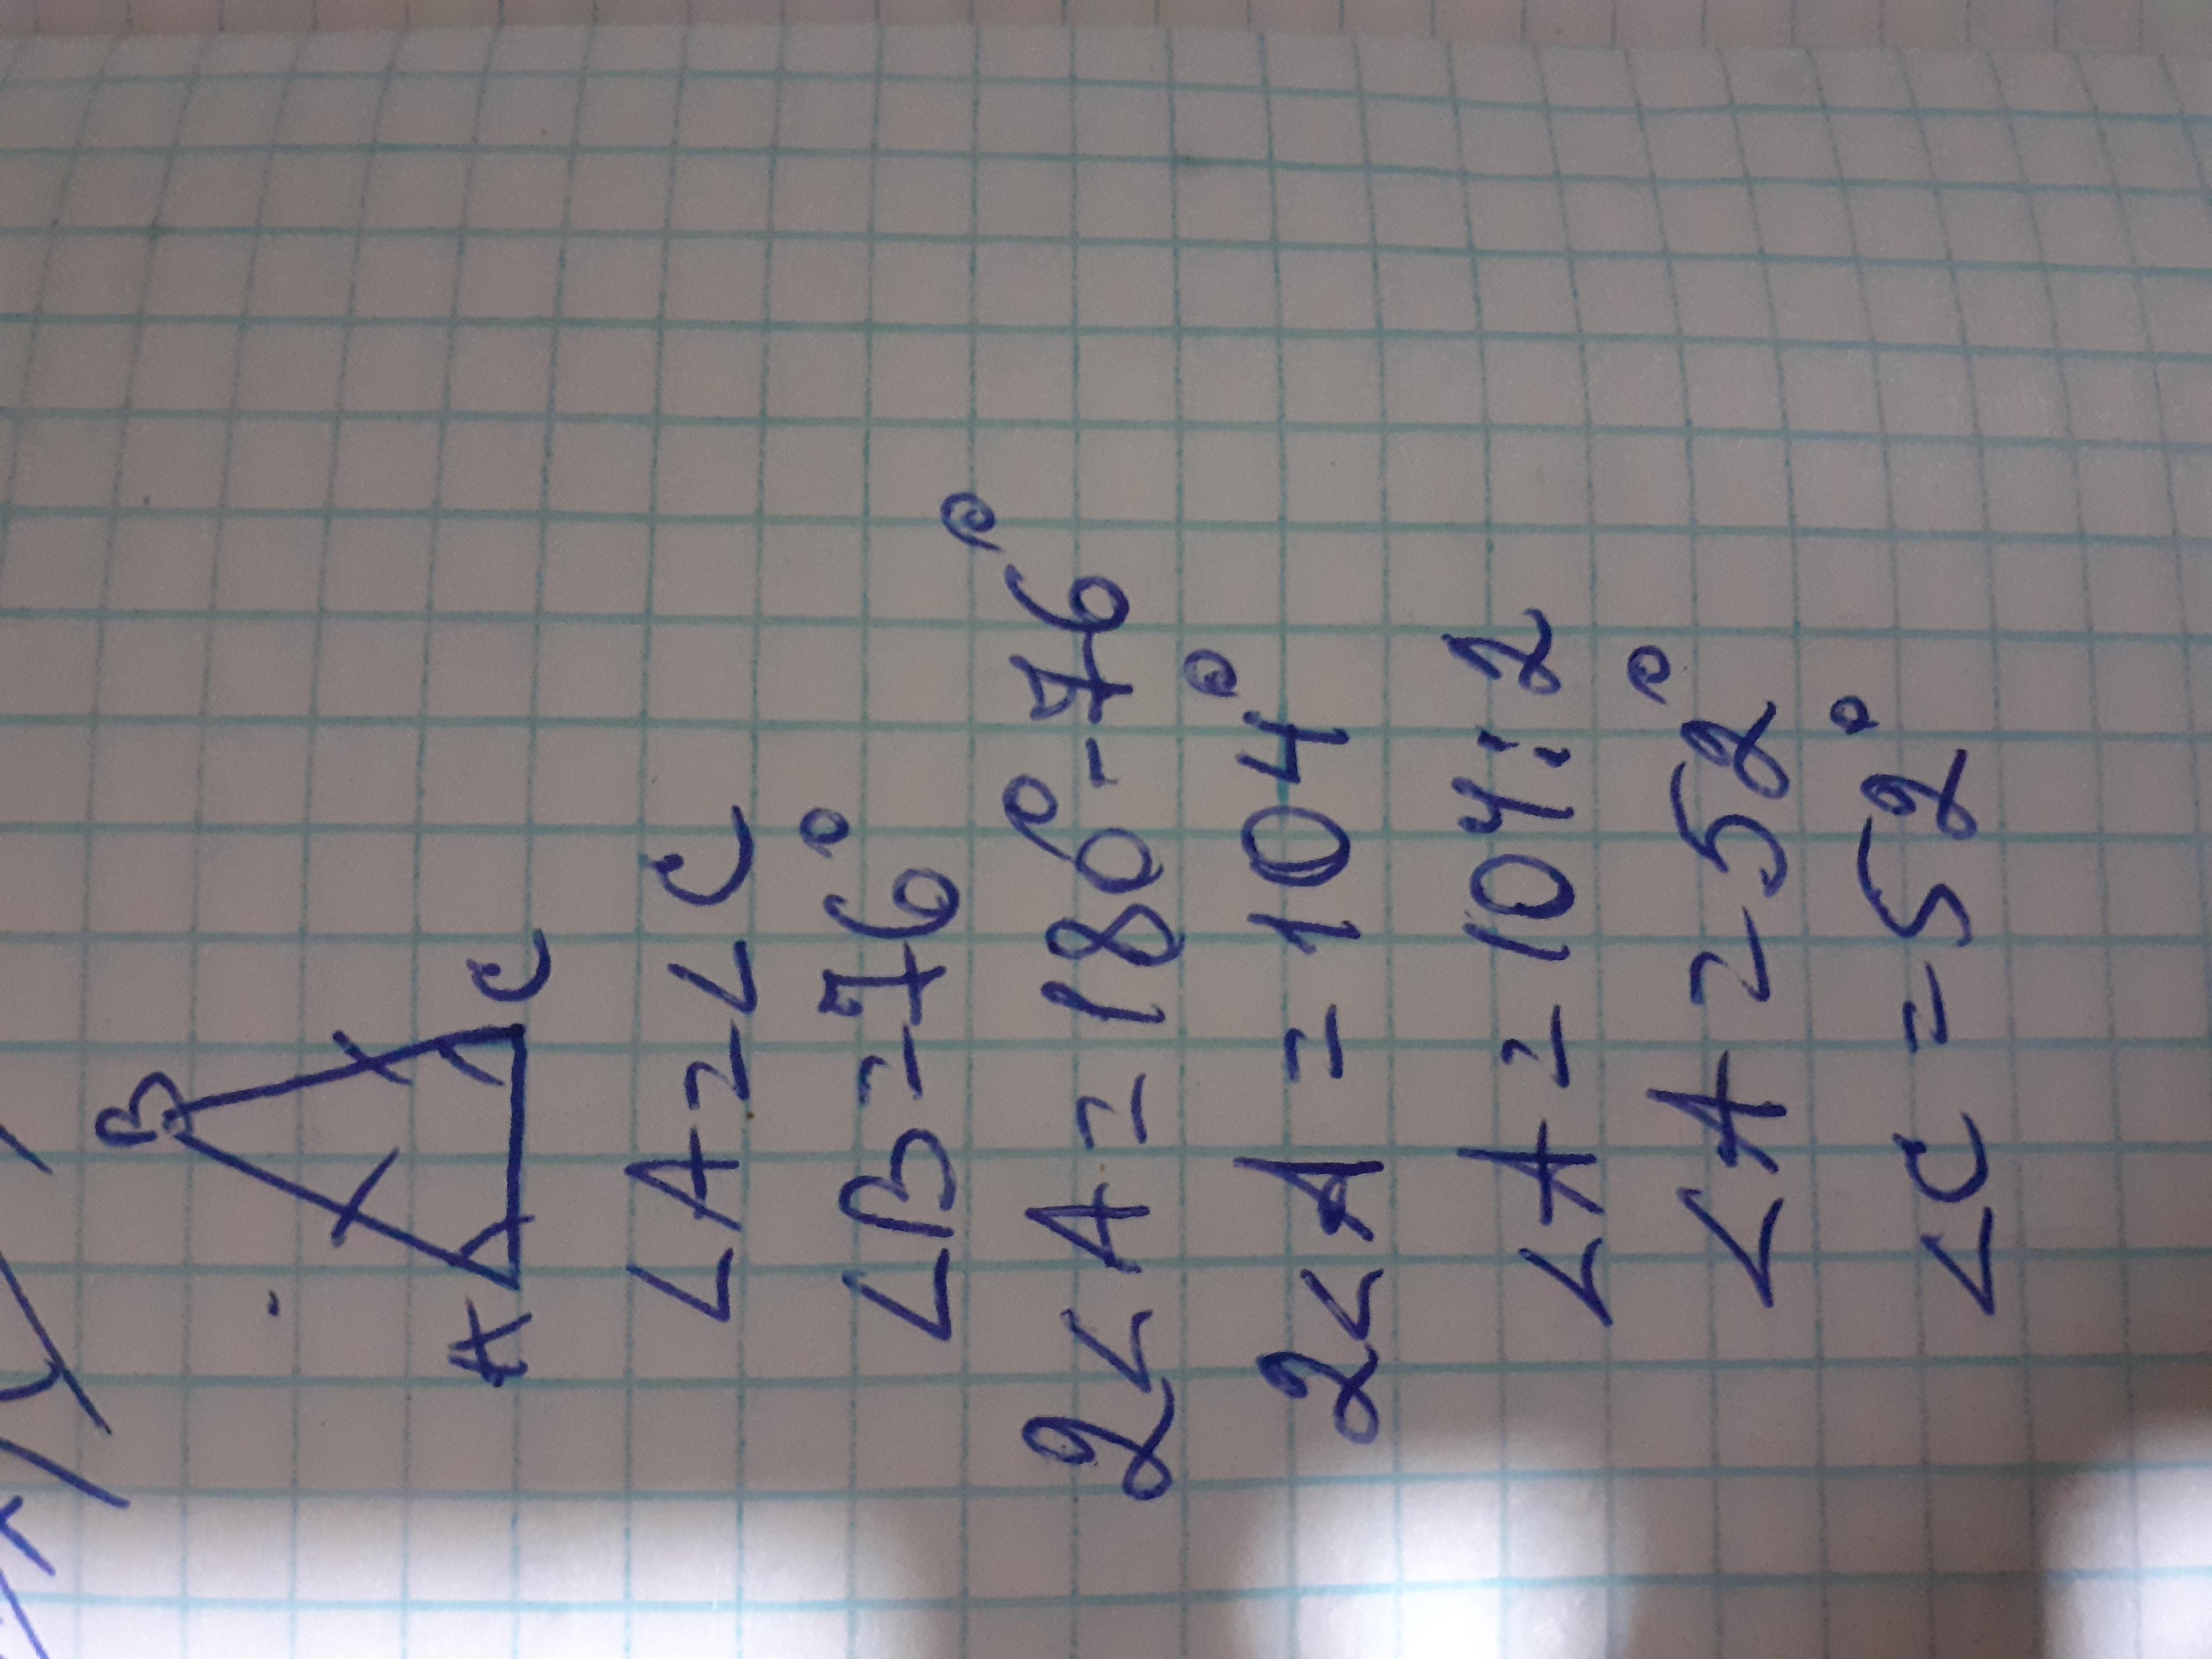 B
A C
∠A=∠C
∠B=76°
2∠A=180°-76°
2∠A=104°
∠A=104:2
∠A=52°
∠C=52°